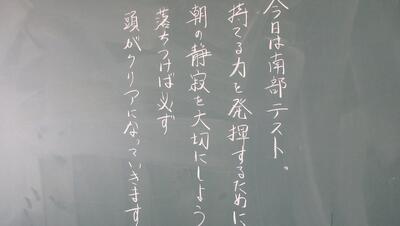 今日は南部テスト。
持てる力を発揮するために
朝の静寂を大切にしよう
落ちつけば必ず
頭がクリアになっていきます